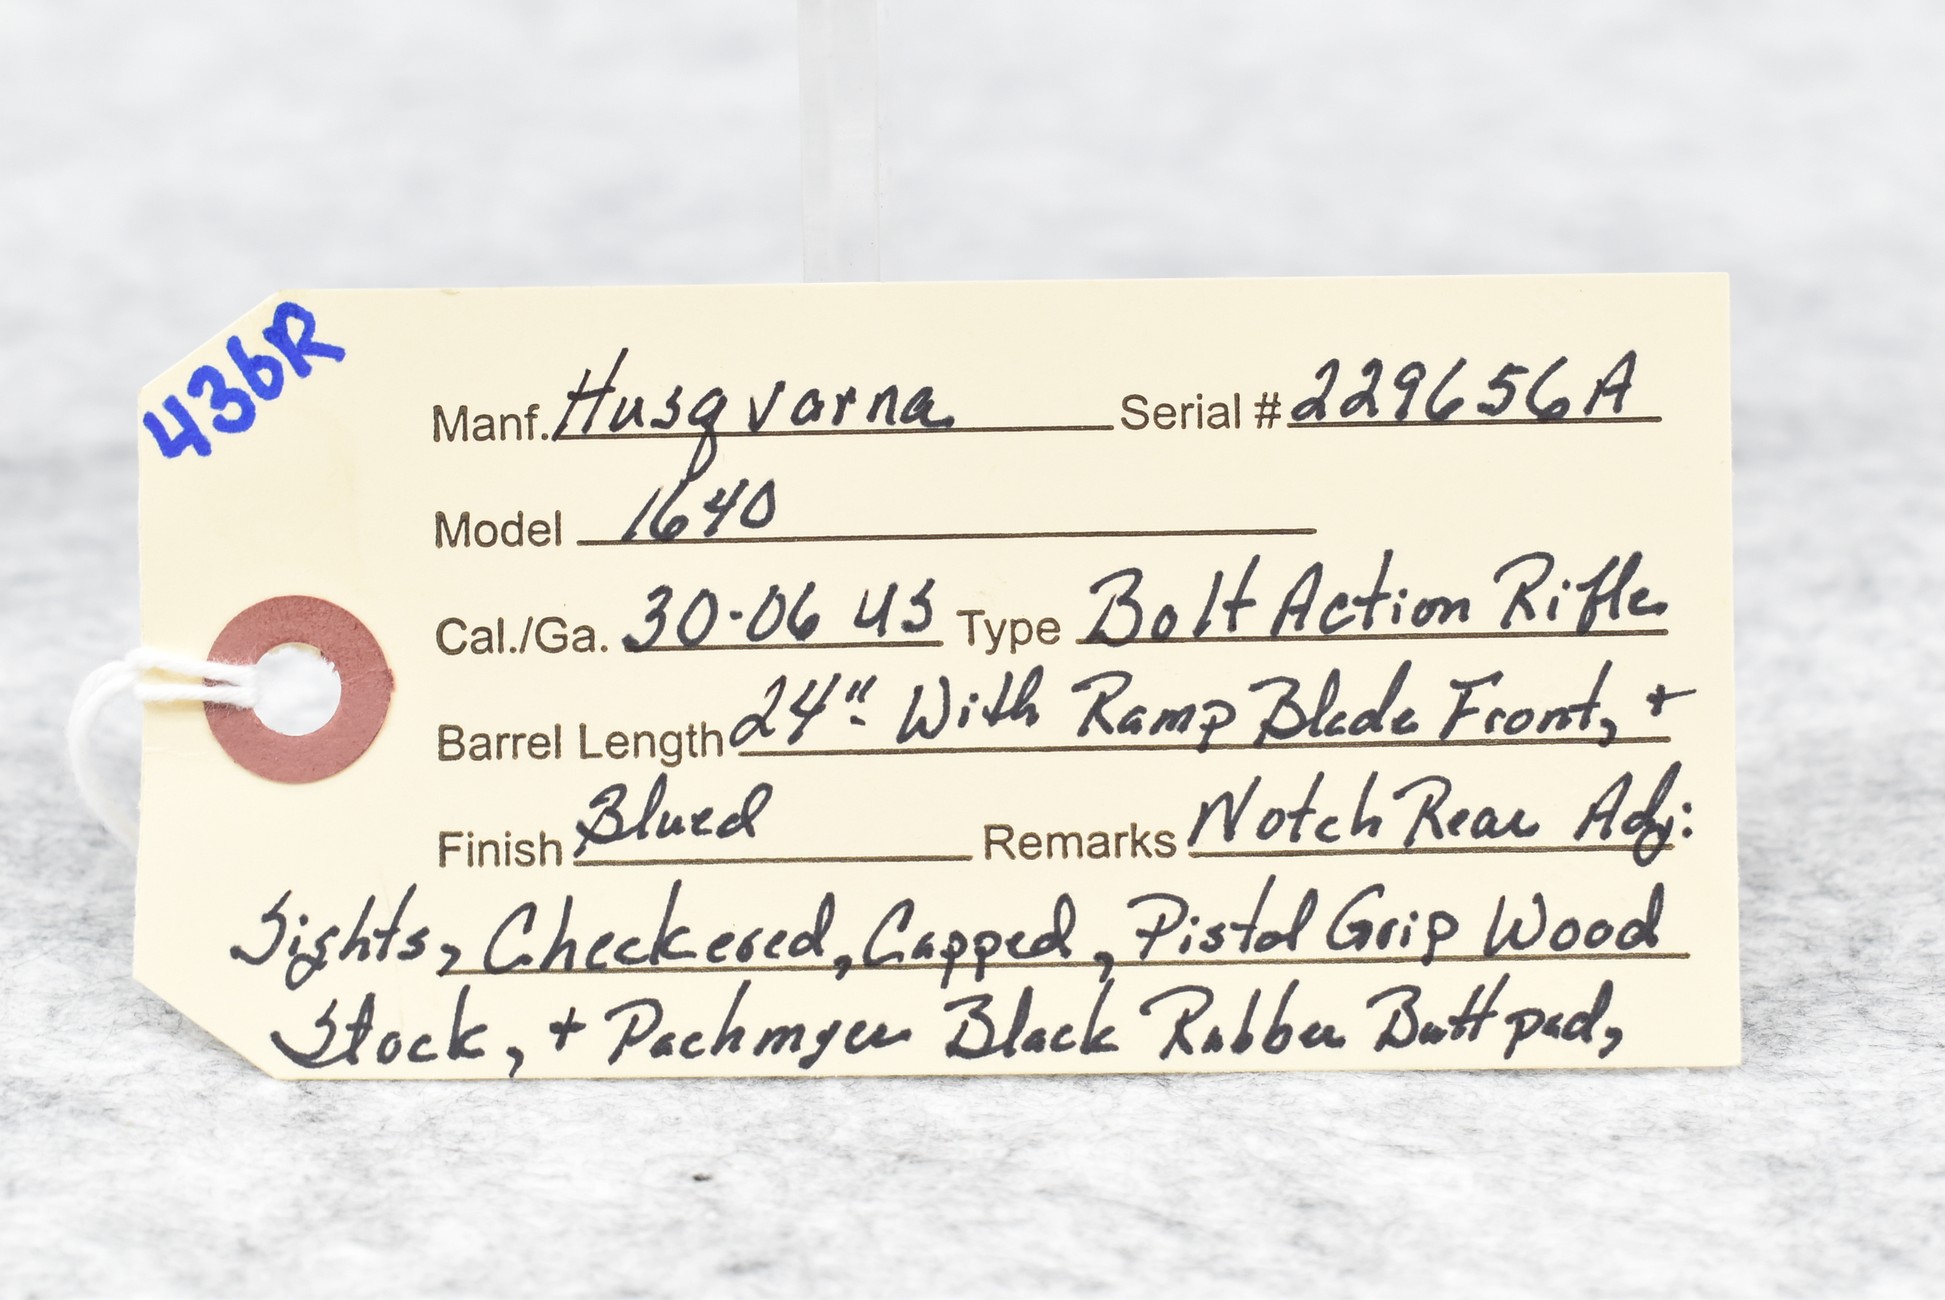 436R
Manf. Husqvarna Serial # 229656A
Model 1640
Cal./Ga. 30-06 US Type Bolt Action Rifle
Barrel Length 24" With Ramp Blade Front, +
Finish Blued Remarks Notch Rear Adj:
Sights, Checkered, Capped, Pistol Grip Wood
Stock, + Pachmyer Black Rubber Buttpad,